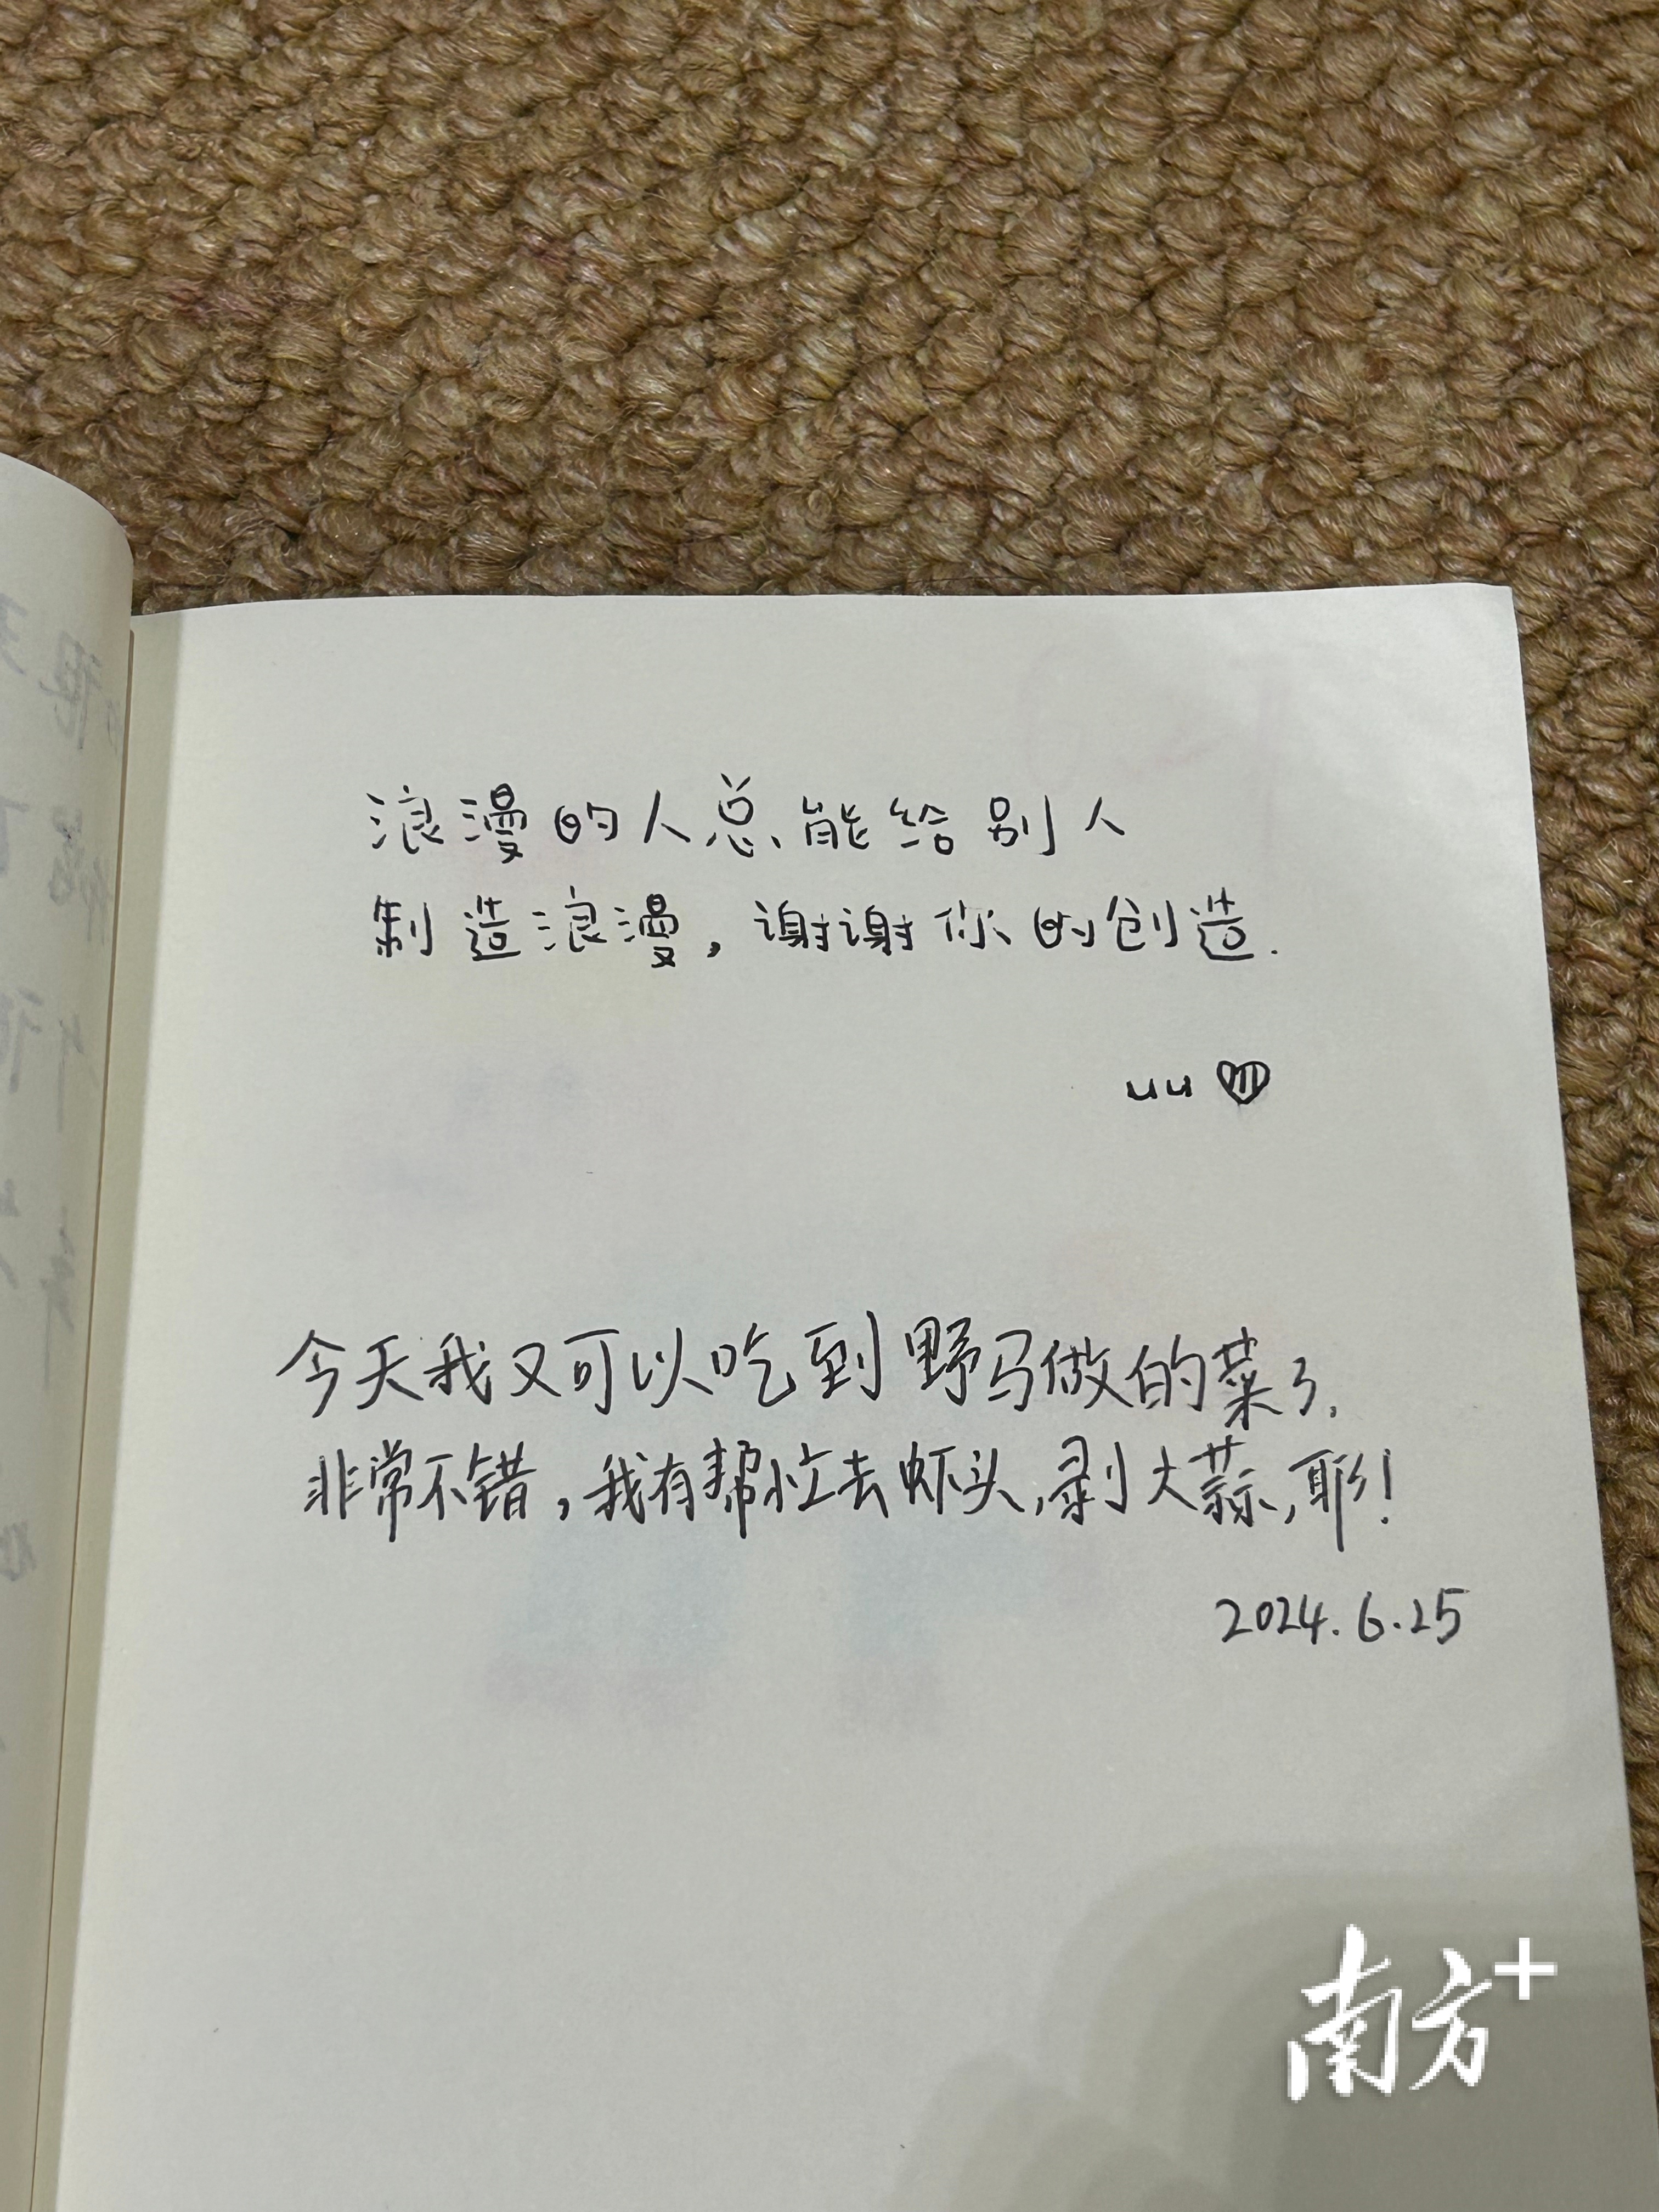 浪漫的人总能给别人
制造浪漫，谢谢你的创造.
uu
今天我又可以吃到野马做的菜了，
非常不错，我有帮忙去虾头，剥大蒜，耶！
2024.6.25
南方+